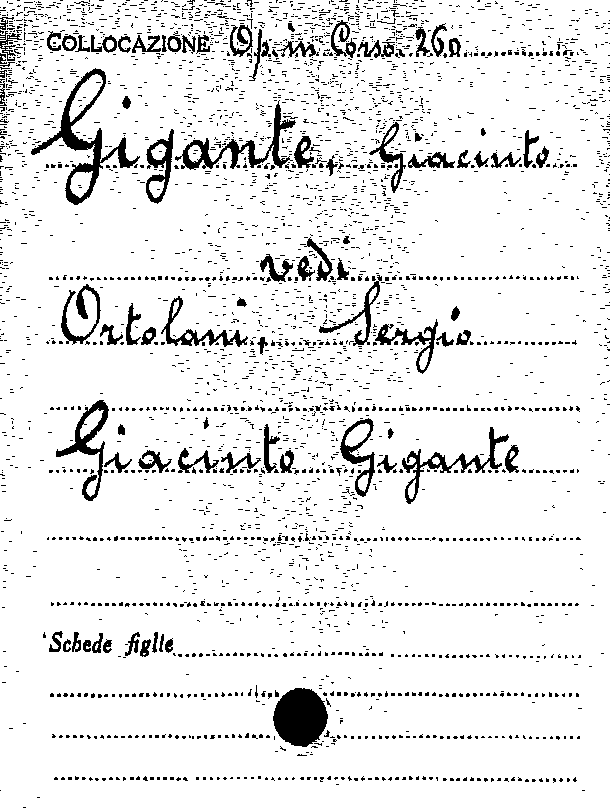 COLLOCAZIONE Op. in Corso. 260
Gigante, Giacinto
vedi
Ortolani, Sergio
Giacinto Gigante
Schede figlie